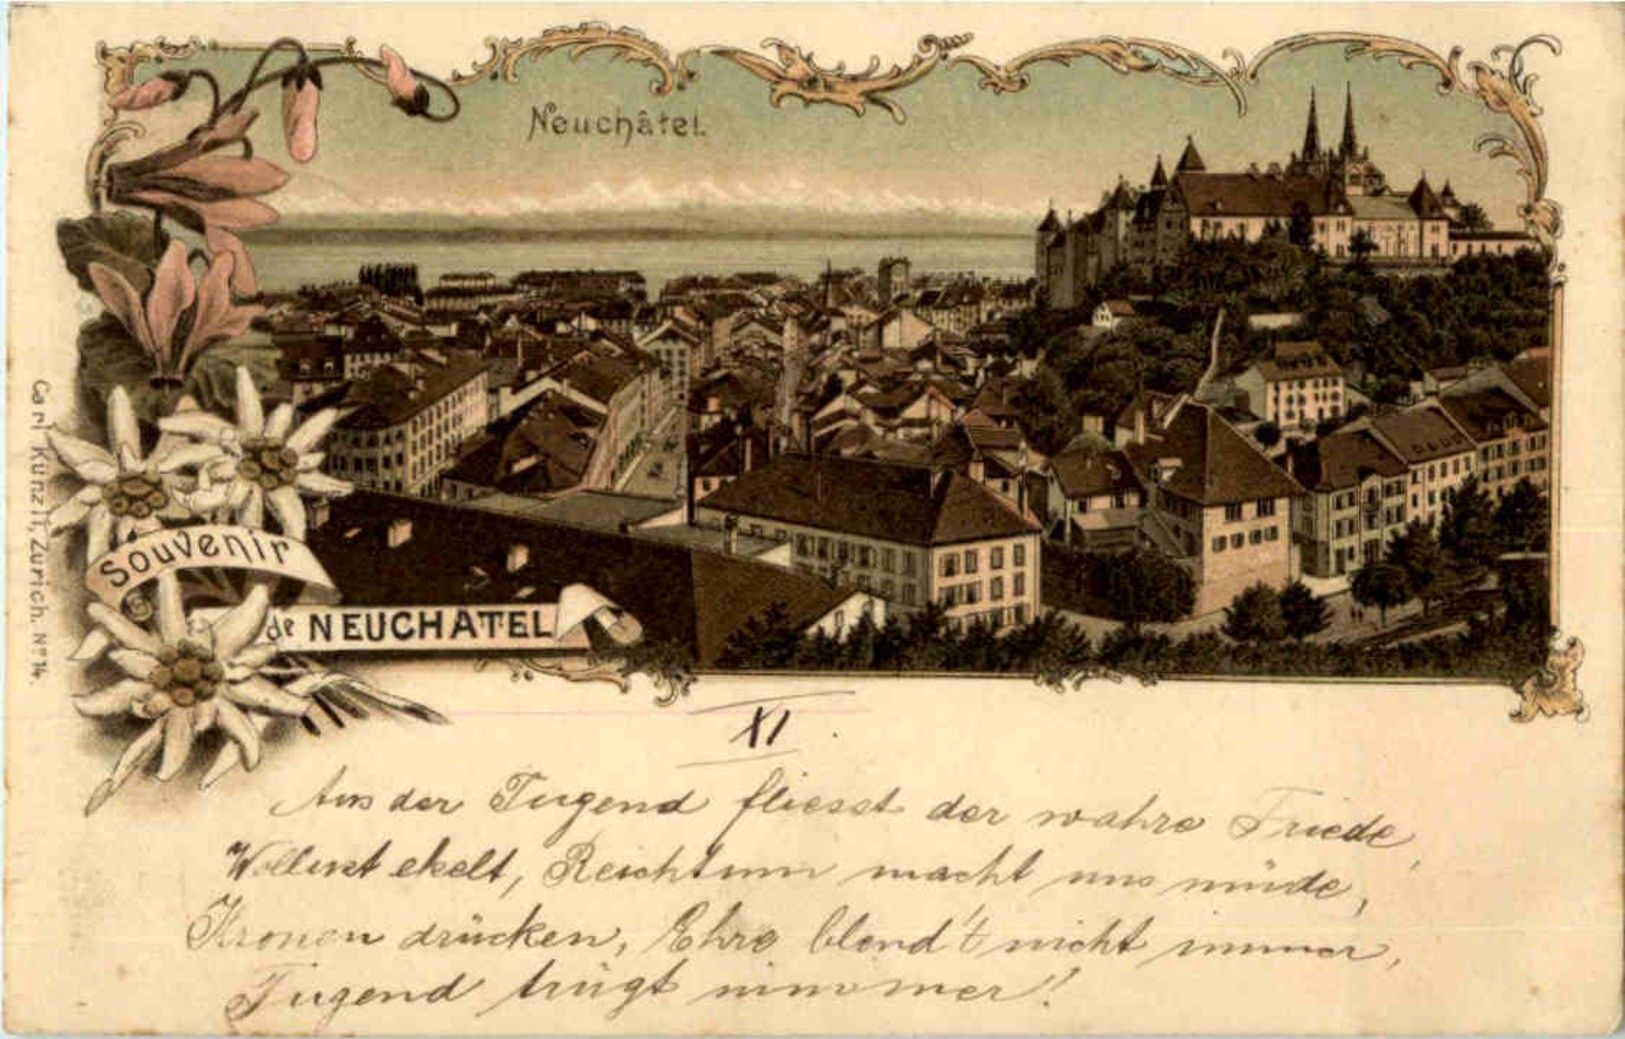 Neuchâtel.
Souvenir
de NEUCHATEL
Carl Künzli, Zürich. Nº 14.
XI.
Aus der Tugend fliesst der wahre Friede,
Wollust ekelt, Reichtum macht uns müde,
Kronen drücken, Ehre blend't nicht immer,
Tugend trügt nimmer!